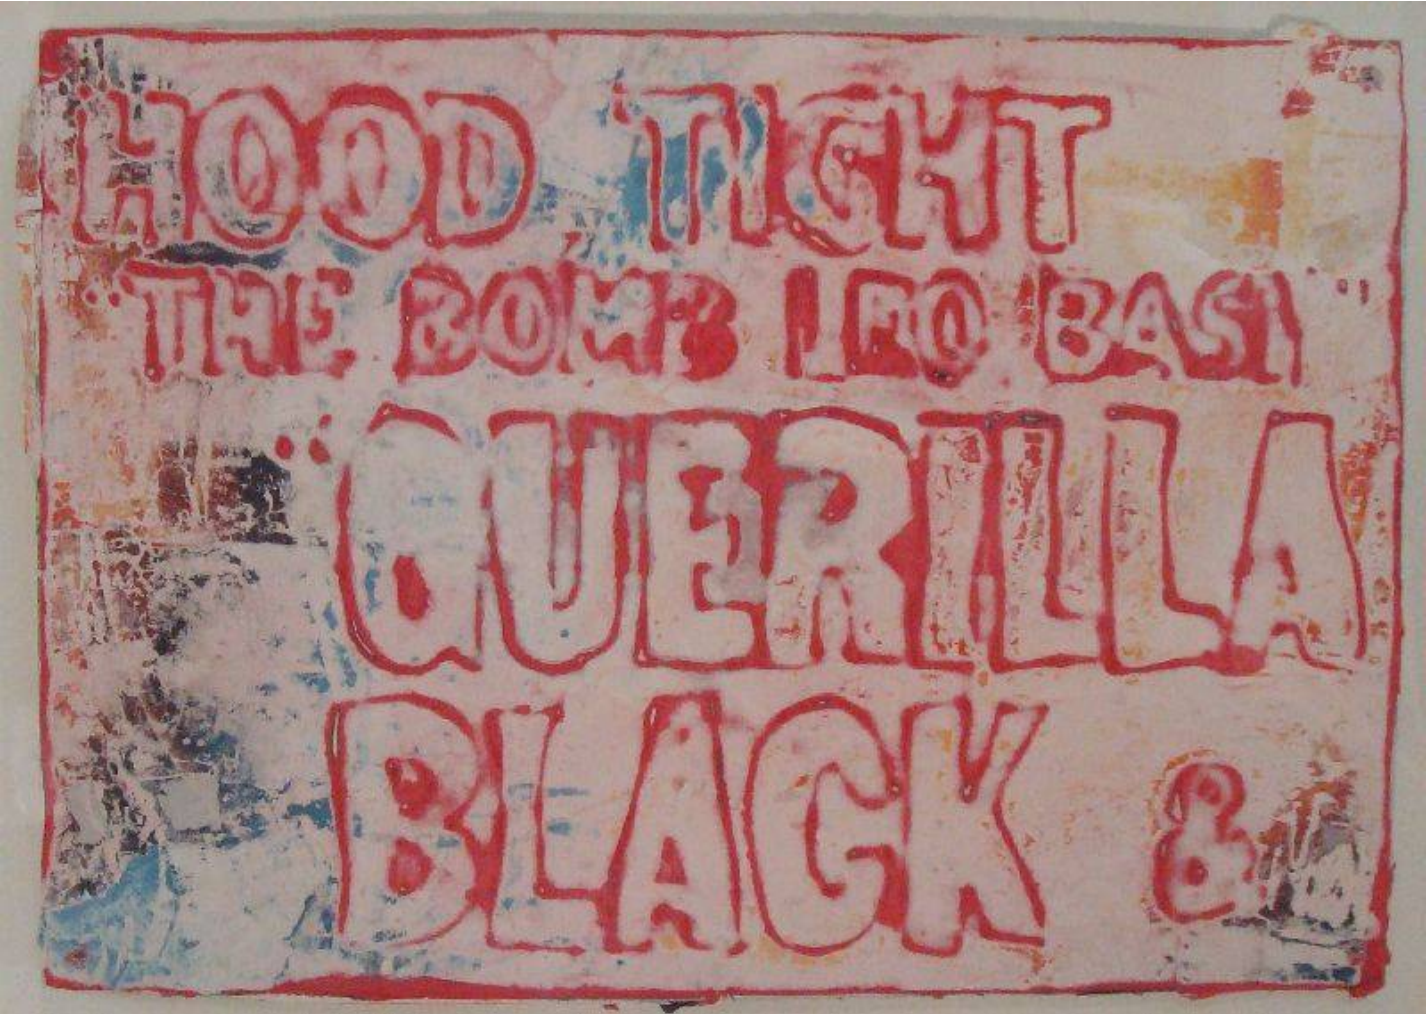 HOOD TIGHT
"THE BOMB ITO BASI"
"GUERILLA
BLACK &